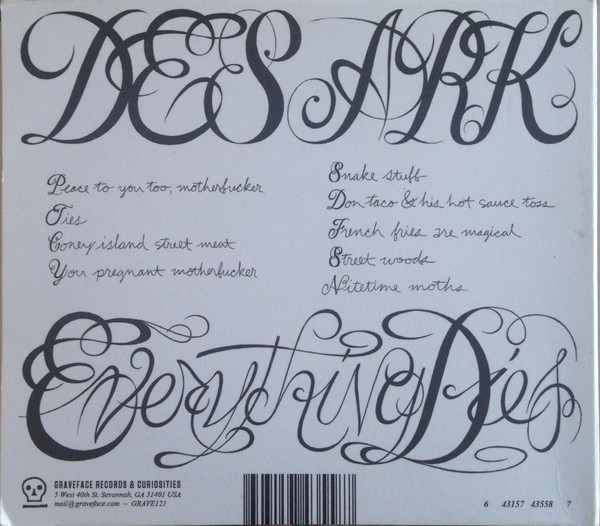 DES ARK
Peace to you too, motherfucker
Ties
Coney island street meat
Your pregnant motherfucker
Snake stuff
Don taco & his hot sauce toss
French fries are magical
Street woods
Nitetime moths
Everything Dies
GRAVEFACE RECORDS & CURIOSITIES
5 West 40th St. Savannah, GA 31401 USA
mail@graveface.com ~ GRAVE121
6 43157 43558 7